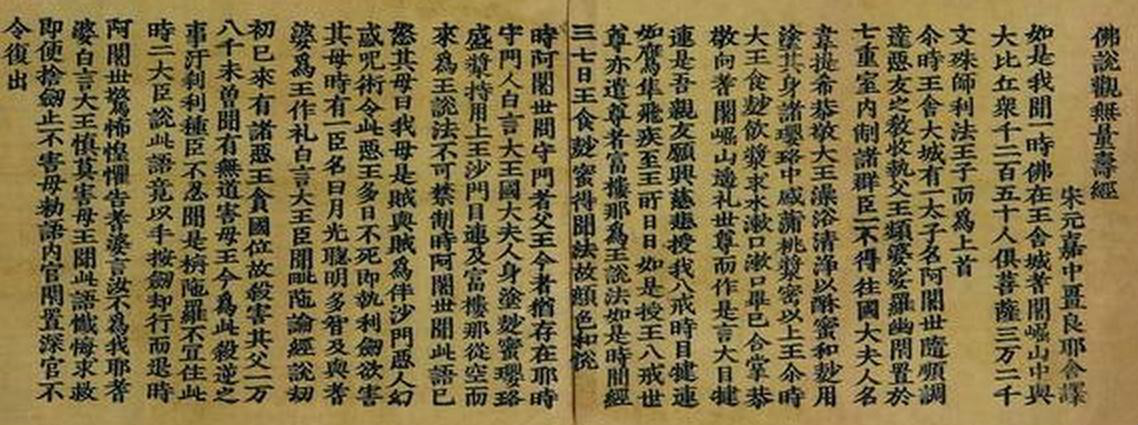 佛說觀無量壽經
宋元嘉中畺良耶舍譯
如是我聞一時佛在王舍城耆闍崛山中與
大比丘衆千二百五十人俱菩薩三万二千
文殊師利法王子而爲上首
尒時王舍大城有一太子名阿闍世隨順調
達惡友之教收執父王頻婆娑羅幽閇置於
七重室內制諸群臣一不得往國大夫人名
韋提希恭敬大王澡浴清淨以酥蜜和麨用
塗其身諸瓔珞中盛蒲桃漿密以上王尒時
大王食麨飲漿求水漱口漱口畢已合掌恭
敬向耆闍崛山遥礼世尊而作是言大目揵
連是吾親友願興慈悲授我八戒時目揵連
如鷹隼飛疾至王所日日如是授王八戒世
尊亦遣尊者富樓那爲王說法如是時閒經
三七日王食麨蜜得聞法故顏色和悅
時阿闍世問守門者父王今者猶存在耶時
守門人白言大王國大夫人身塗麨蜜瓔珞
盛漿持用上王沙門目連及富樓那從空而
來爲王說法不可禁制時阿闍世聞此語已
怒其母曰我母是賊與賊爲伴沙門惡人幻
惑呪術令此惡王多日不死即執利劒欲害
其母時有一臣名曰月光聰明多智及與耆
婆爲王作礼白言大王臣聞毗陁論經說劫
初已來有諸惡王貪國位故殺害其父一万
八千未曾聞有無道害母王今爲此殺逆之
事汙刹利種臣不忍聞是栴陁羅不宜住此
時二大臣說此語竟以手按劒却行而退時
阿闍世驚怖惶懼告耆婆言汝不爲我耶耆
婆白言大王愼莫害母王聞此語懺悔求救
即便捨劒止不害母勑語内官閇置深宮不
令復出